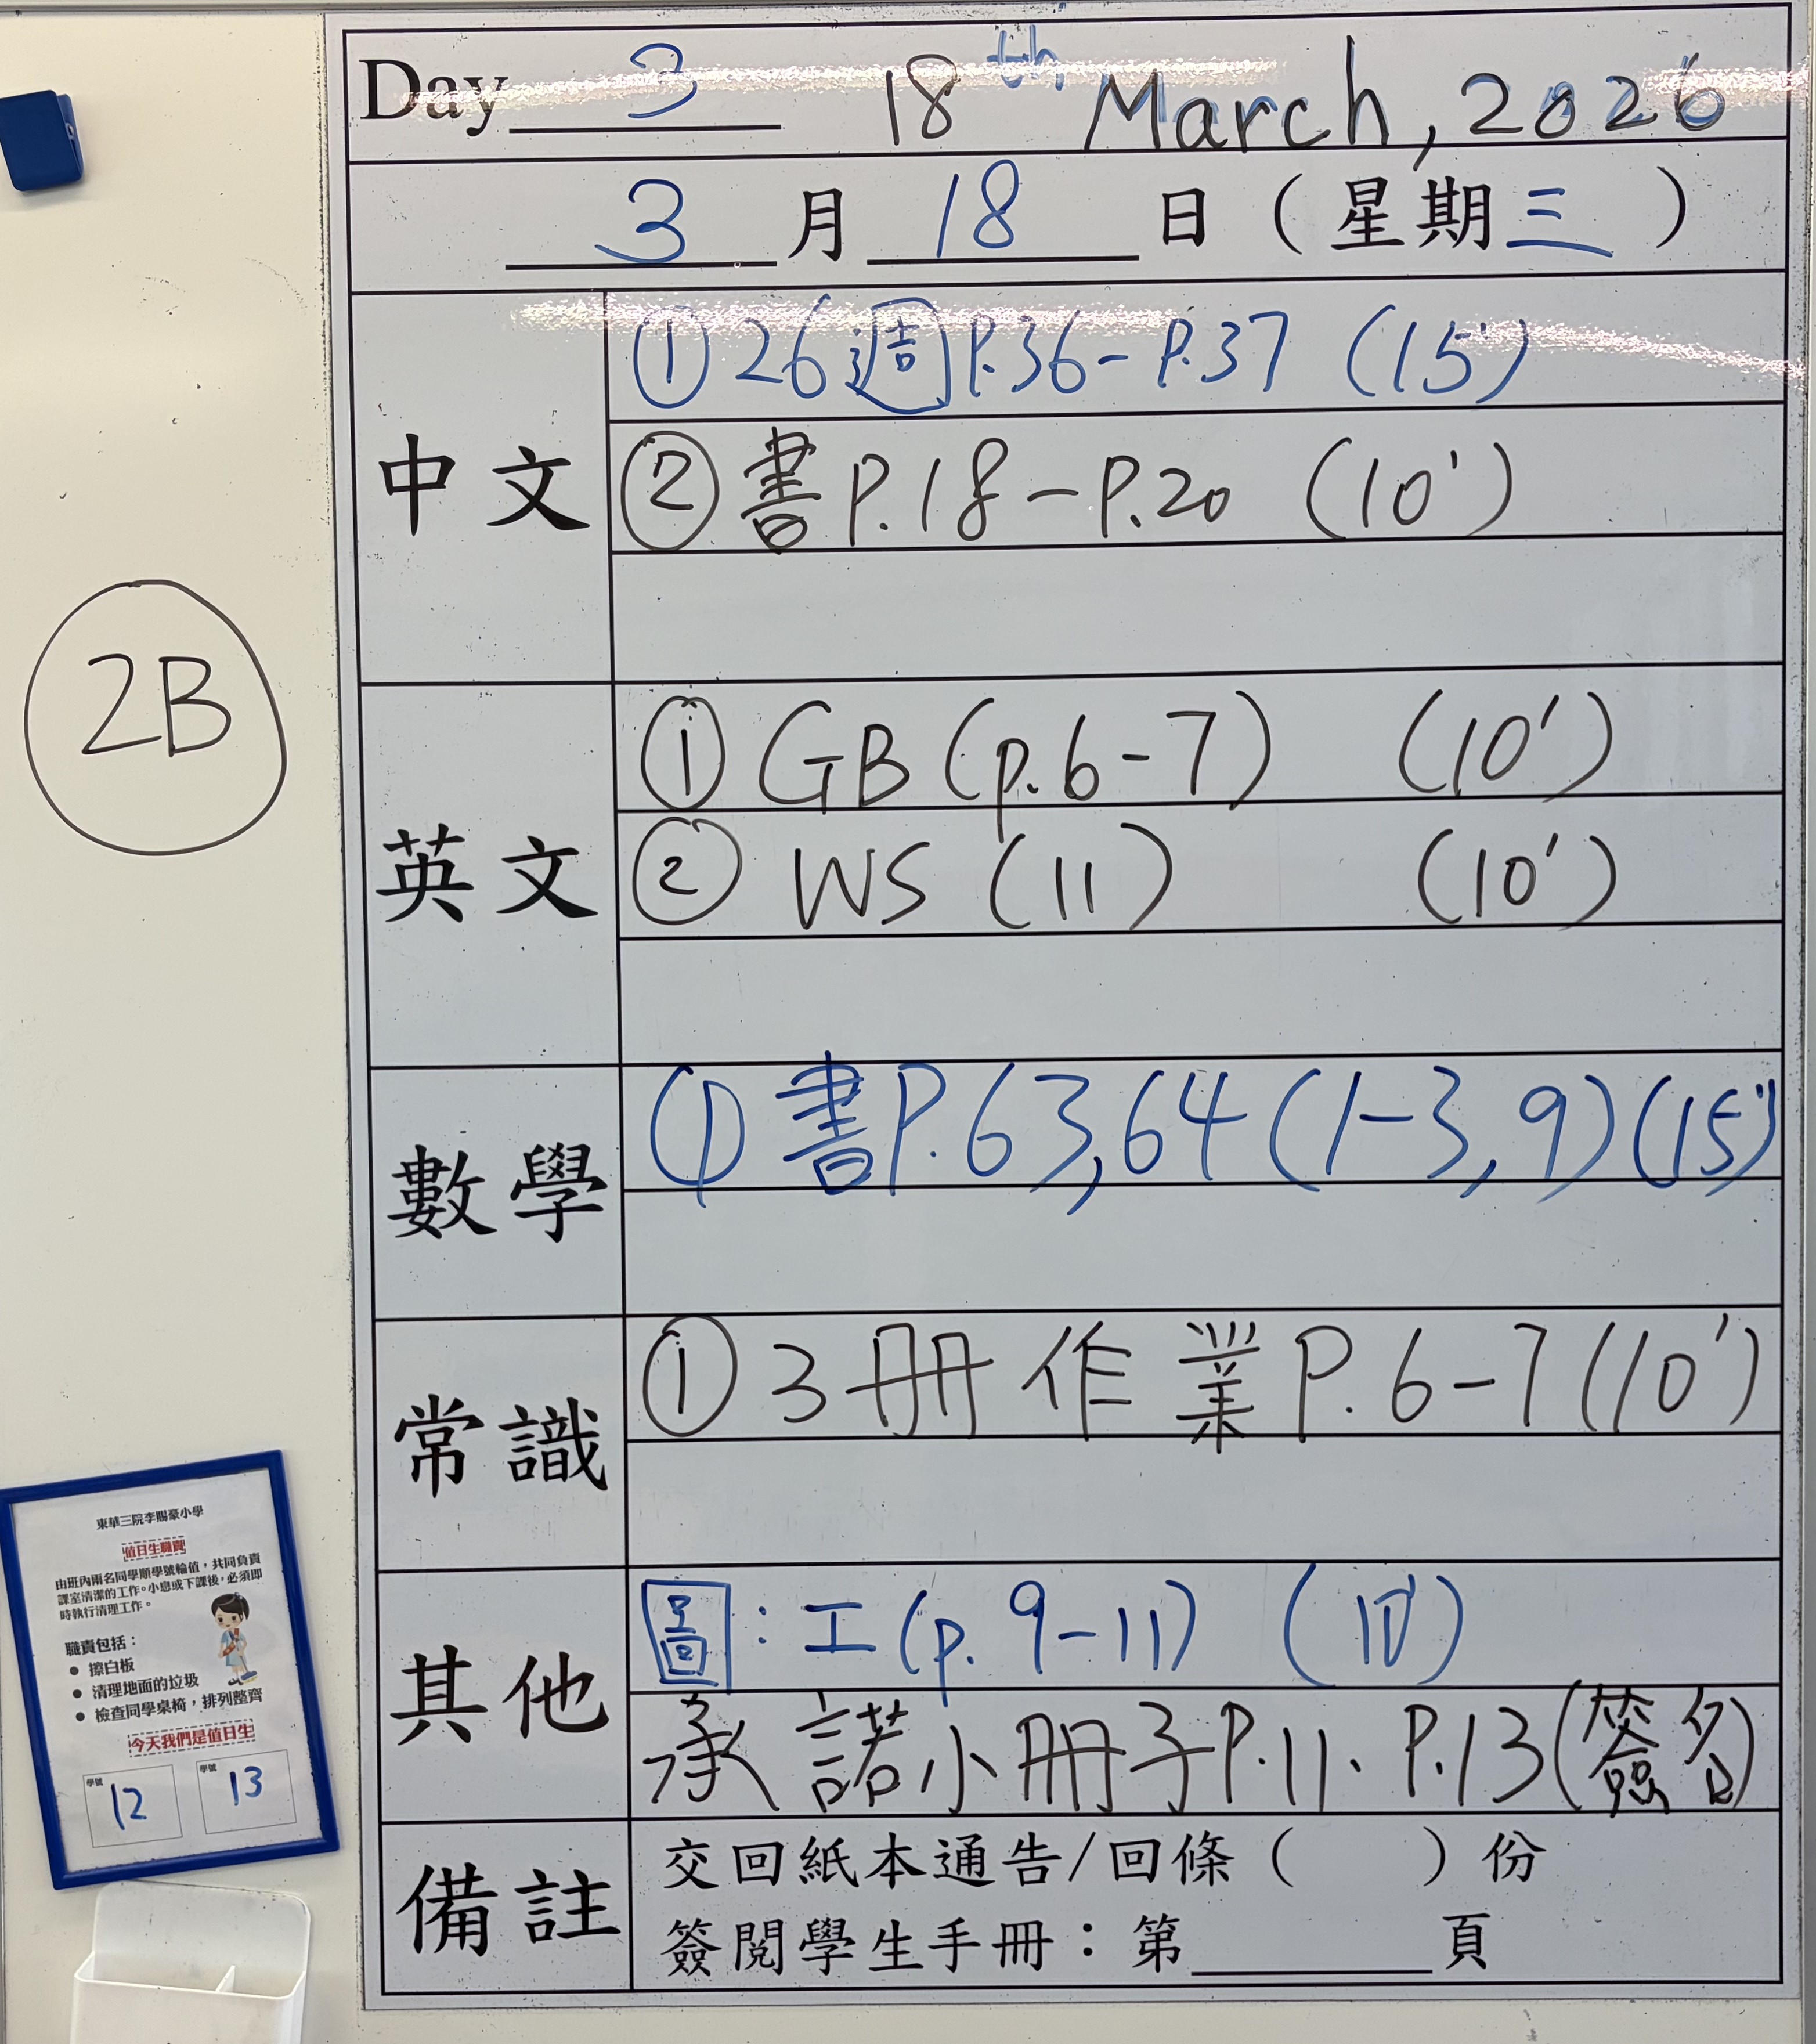 Day 3 18th March, 2026
3 月 18 日 (星期三)
中文
① 26 週 P.36-P.37 (15')
② 書 P.18-P.20 (10')
英文
① GB (p.6-7) (10')
② WS (11) (10')
數學
① 書P.63,64 (1-3, 9) (15')
常識
① 3冊作業P.6-7 (10')
其他
圖:工(p.9-11) (10')
承諾小冊子P.11、P.13(簽名)
備註
交回紙本通告/回條( )份
簽閱學生手冊:第______頁
2B
東華三院李賜豪小學
值日生職責
由班內兩名同學順學號輪值,共同負責
課室清潔的工作。小息或下課後,必須即
時執行清理工作。
職責包括:
● 擦白板
● 清理地面的垃圾
● 檢查同學桌椅,排列整齊
今天我們是值日生
學號 12 學號 13